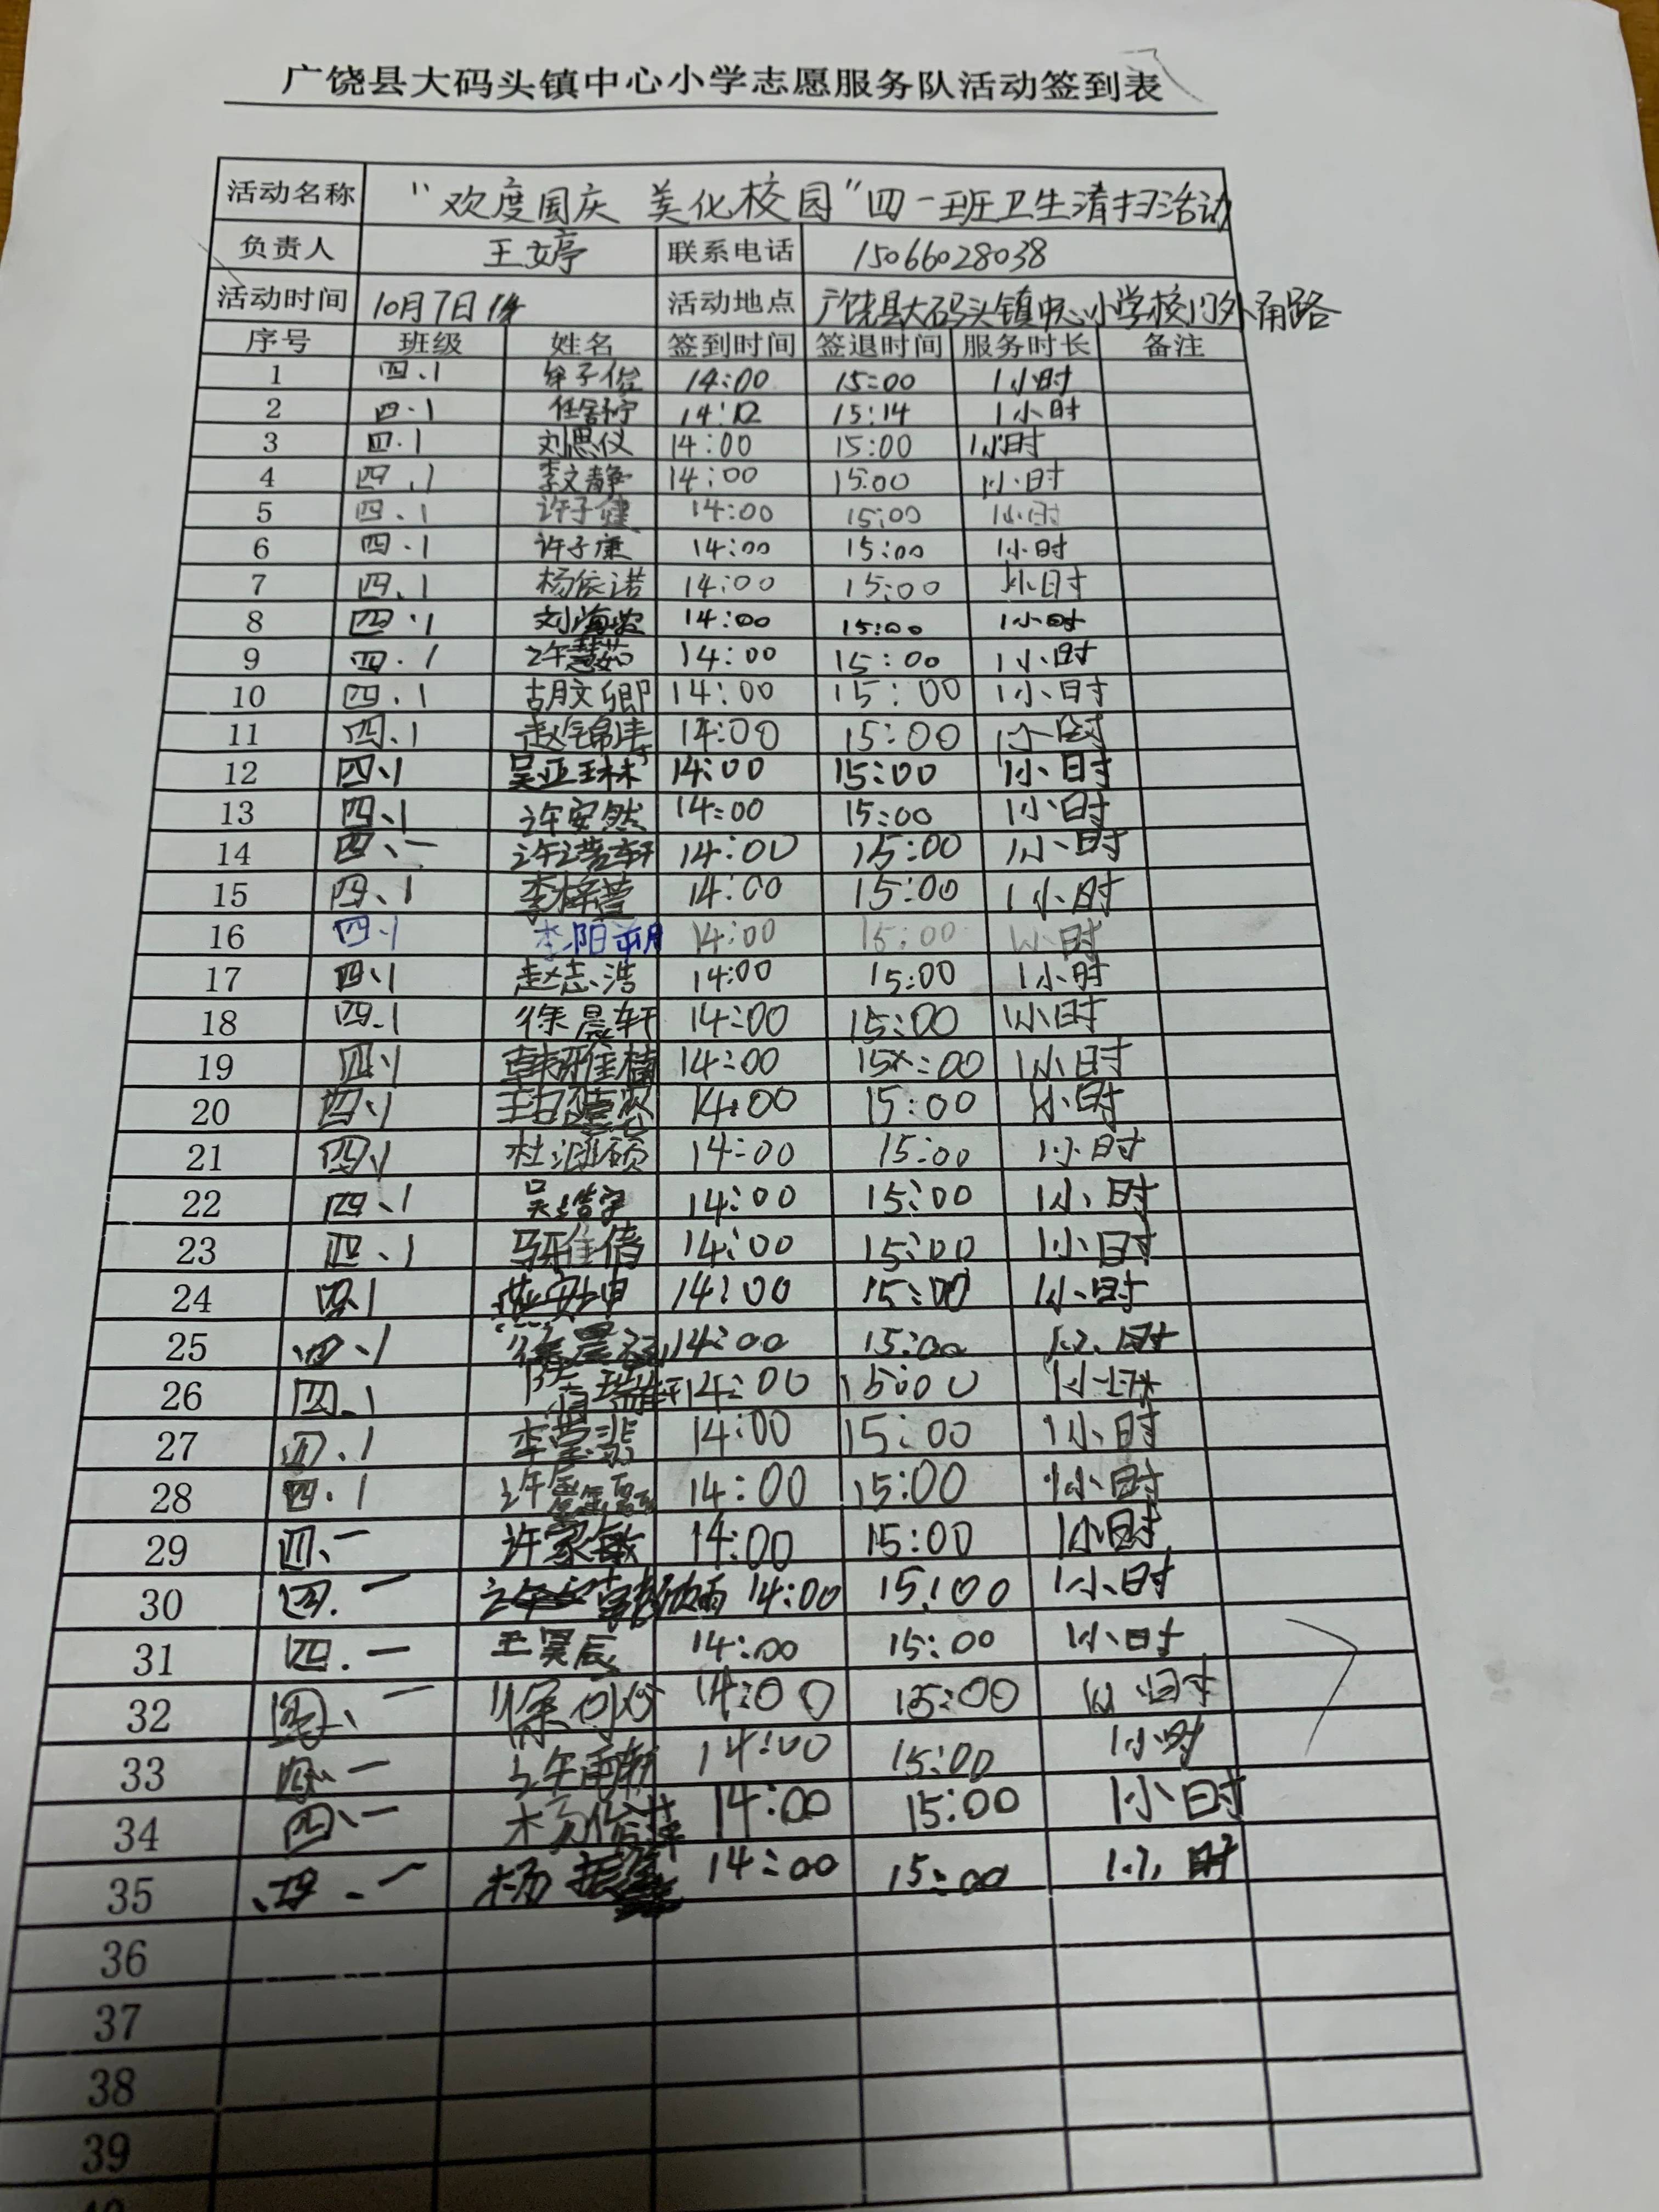 广饶县大码头镇中心小学志愿服务队活动签到表
活动名称 “欢度国庆 美化校园”四一班卫生清扫活动
负责人 王婷 联系电话 15066028038
活动时间 10月7日 活动地点 广饶县大码头镇中心小学校门外甬路
序号 班级 姓名 签到时间 签退时间 服务时长 备注
1 四.1 14:00 15:00 1小时
2 四.1 任舒宁 14:12 15:14 1小时
3 四.1 刘思仪 14:00 15:00 1小时
4 四.1 李文静 14:00 15:00 1小时
5 四、1 许子健 14:00 15:00 1小时
6 四.1 许子康 14:00 15:00 1小时
7 四、1 杨依诺 14:00 15:00 1小时
8 四.1 刘海 14:00 15:00 1小时
9 四.1 许慧茹 14:00 15:00 1小时
10 四.1 胡文卿 14:00 15:00 1小时
11 四.1 赵锦 14:00 15:00 1小时
12 四、1 吴亚琳 14:00 15:00 1小时
13 四、1 许安然 14:00 15:00 1小时
14 四、一 许诺轩 14:00 15:00 1小时
15 四、1 李梓萱 14:00 15:00 1小时
16 四.1 李阳 14:00 15:00 1小时
17 四、1 赵志浩 14:00 15:00 1小时
18 四.1 徐晨轩 14:00 15:00 1小时
19 四.1 韩雅楠 14:00 15:00 1小时
20 四、1 14:00 15:00 1小时
21 四、1 杜硕 14:00 15:00 1小时
22 四、1 吴浩宇 14:00 15:00 1小时
23 四、1 马雅倩 14:00 15:00 1小时
24 四.1 14:00 15:00 1小时
25 四.1 徐晨 14:00 15:00 1小时
26 四.1 14:00 15:00 1小时
27 四.1 李 14:00 15:00 1小时
28 四.1 许 14:00 15:00 1小时
29 四、一 许家敏 14:00 15:00 1小时
30 四.一 14:00 15:00 1小时
31 四.一 王昊辰 14:00 15:00 1小时
32 四、一 徐 14:00 15:00 1小时
33 四、一 许 14:00 15:00 1小时
34 四、一 杨 14:00 15:00 1小时
35 四.一 杨振 14:00 15:00 1小时
36
37
38
39